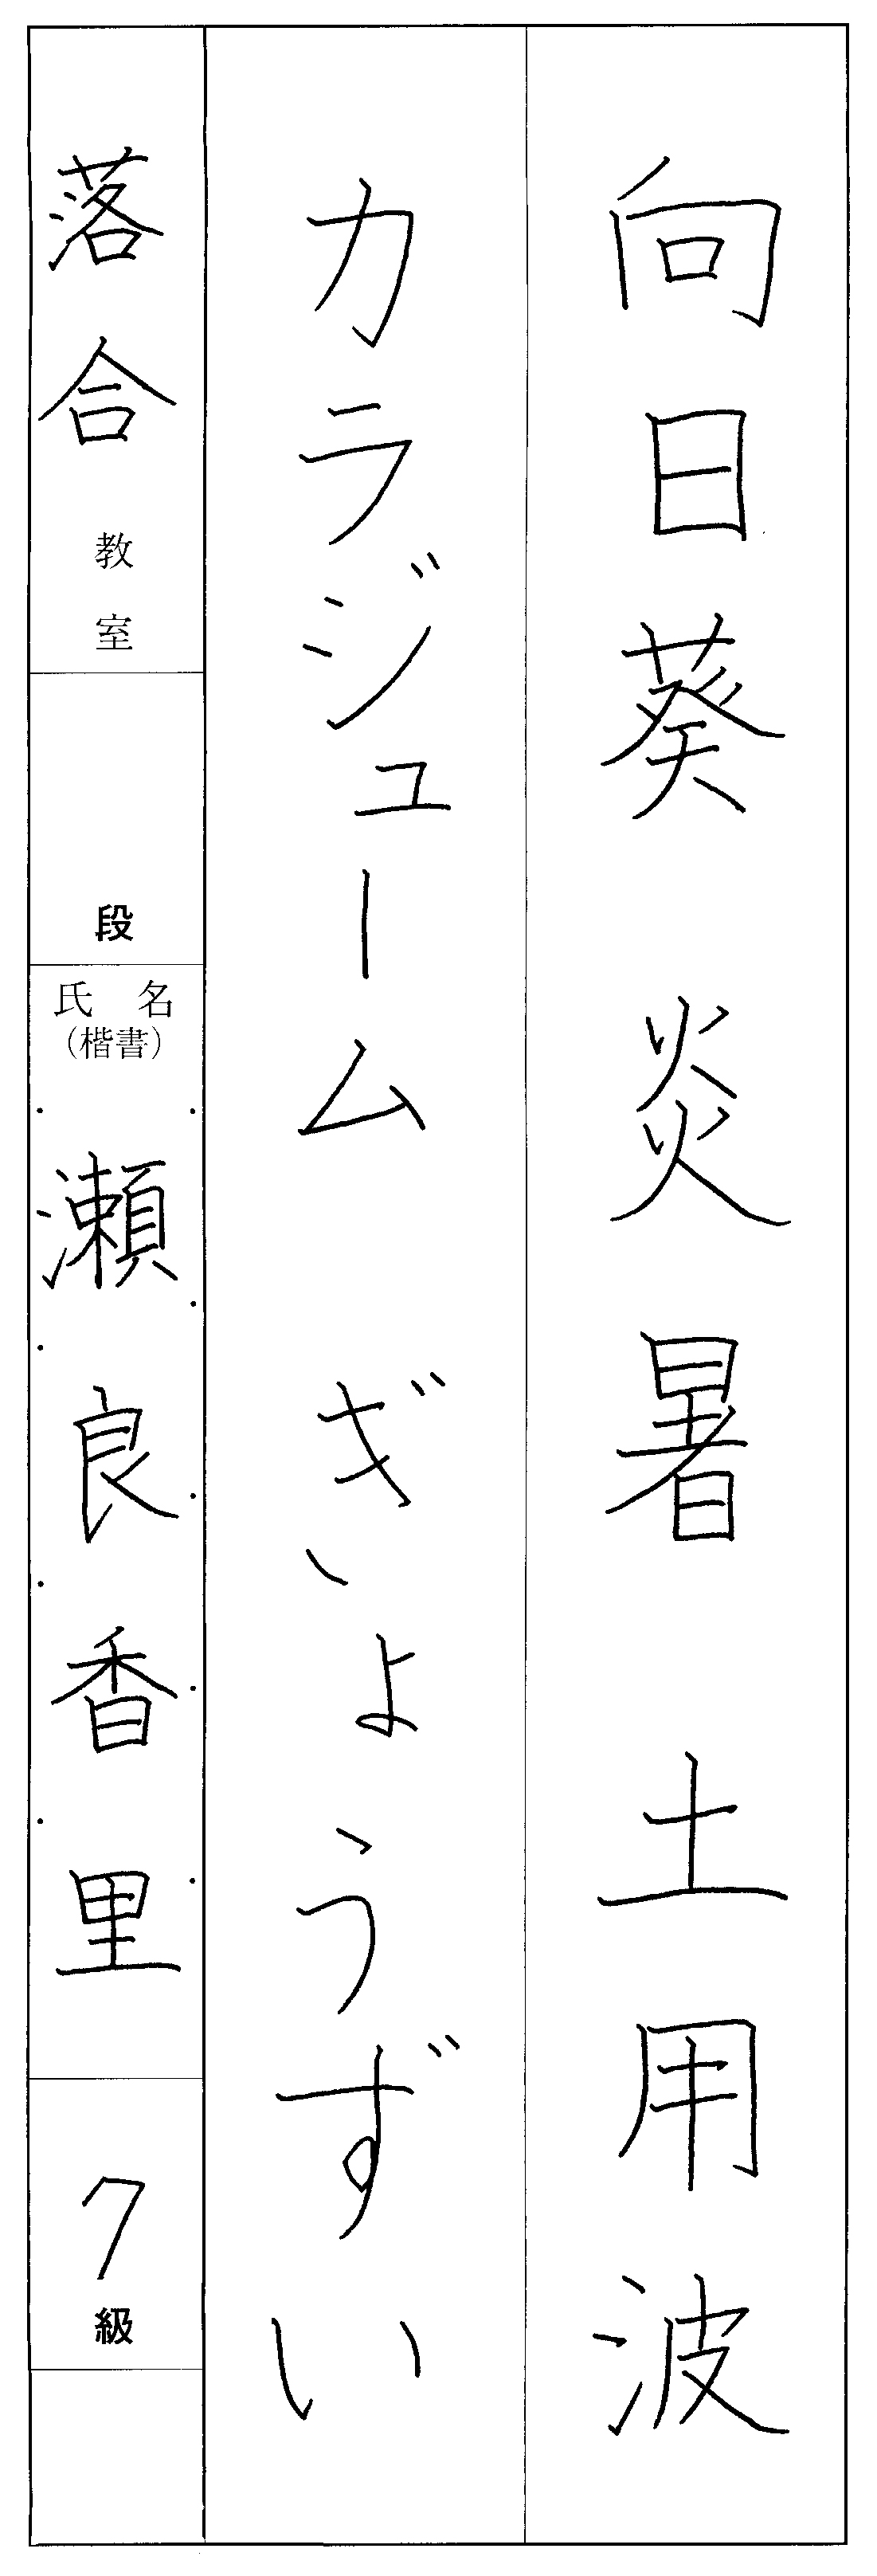 向日葵 炎暑 土用波
カラジューム ぎょうずい
落合教室
段
氏名
（楷書）
瀬良香里
7級